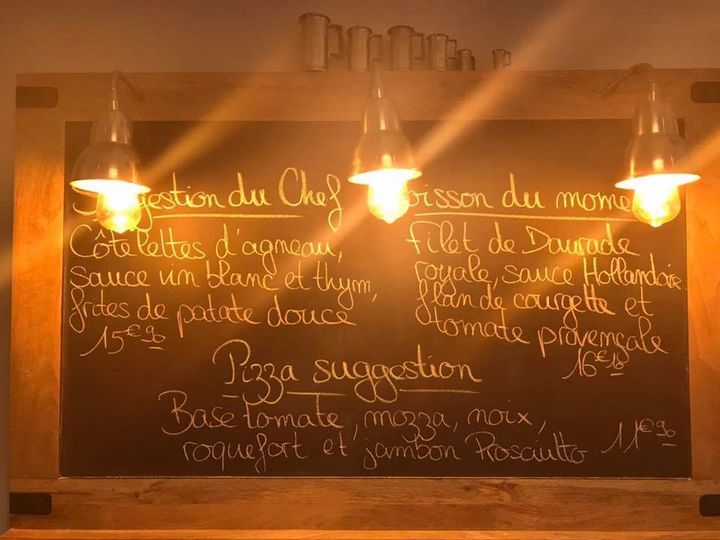 Suggestion du Chef
Côtelettes d'agneau,
sauce vin blanc et thym,
frites de patate douce
15€90
Poisson du moment
Filet de Daurade
royale, sauce Hollandaise
flan de courgette et
tomate provençale
16€10
Pizza suggestion
Base tomate, mozza, noix,
roquefort et jambon Prosciutto
11€90